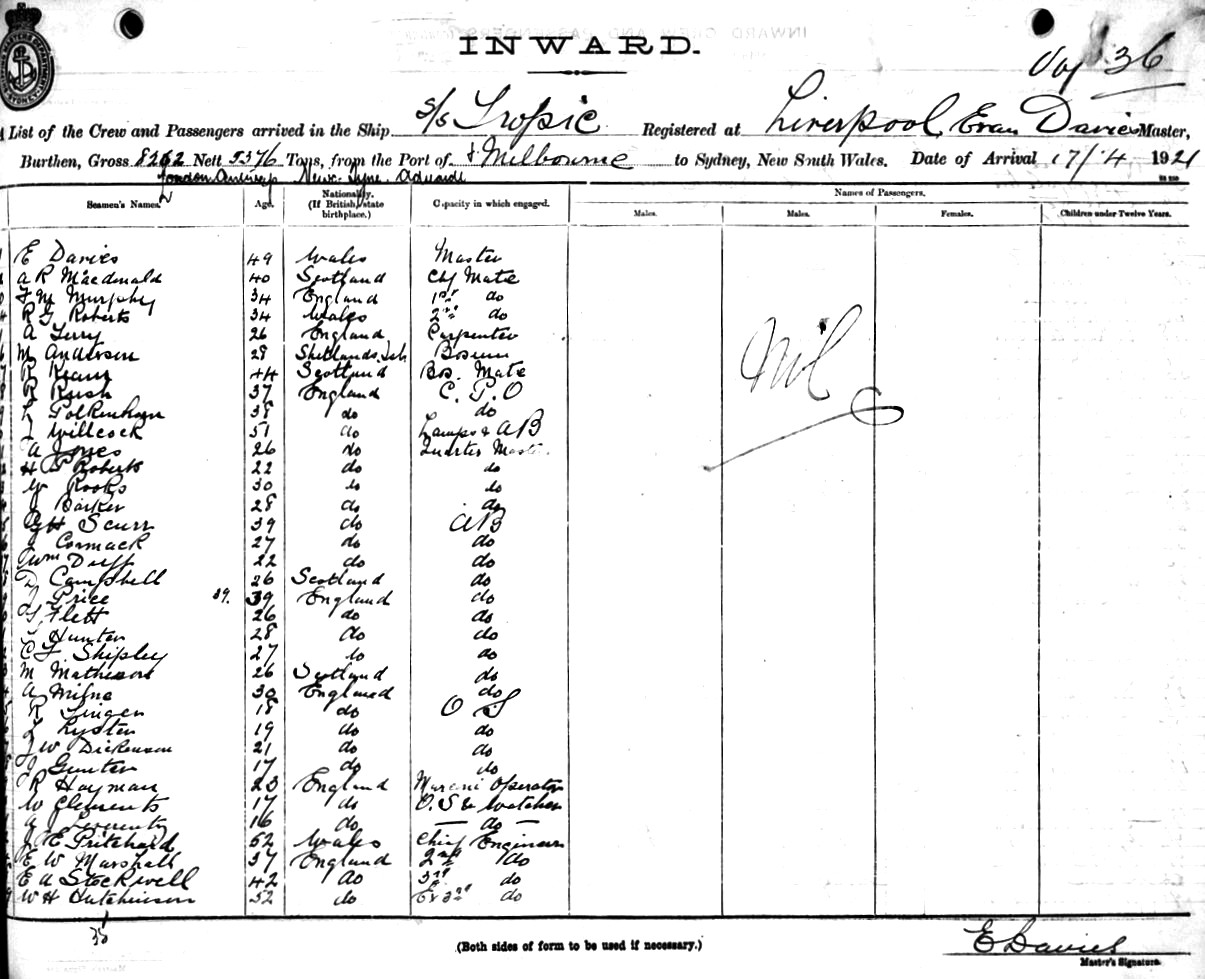 INWARD.
Voy 36
List of the Crew and Passengers arrived in the Ship s/s Tropic Registered at Liverpool, Evan Davies Master,
Burthen, Gross 8262 Nett 5376 Tons, from the Port of & Melbourne to Sydney, New South Wales. Date of Arrival 17/4 1921
London Antwerp Newc. Tyne. Adelaide
Seamen's Names. Age. Nationality. (If British, state birthplace.) Capacity in which engaged. Names of Passengers.
Males. Males. Females. Children under Twelve Years.
E Davies 49 Wales Master
A R Macdonald 40 Scotland Chf Mate
F M Murphy 34 England 1st do
R G Roberts 34 Wales 2nd do
A Terry 26 England Carpenter
M Anderson 28 Shetlands Isls Bosun
R 44 Scotland Bos. Mate
R Rush 37 England C. P. O
38 do do
J Willcock 51 do Lamps & AB
A Jones 26 do Quarter Master
H P Roberts 22 do do
W Rooks 30 do do
J Barker 28 do do
G H Scurr 39 do AB
J Cormack 27 do do
Wm Duff 22 do do
D Campbell 26 Scotland do
J Price 39. 39 England do
Flett 26 do do
Hunter 28 do do
C F Shipley 27 do do
M Matheson 26 Scotland do
A Milne 30 England do
R 18 do O S
Lysten 19 do do
J W Dickenson 21 do do
J Gunter 17 do do
R Hayman 23 England Marconi Operator
W Clements 17 do O. S & Watches
A J 16 do — do —
J E Pritchard 52 Wales Chief Engineer
E W Marshall 37 England 2nd do
E A Stockwell 42 do 3rd do
W H Hutchinson 52 do Ex 3rd do
Nil
35
(Both sides of form to be used if necessary.)
E Davies
Master's Signature.